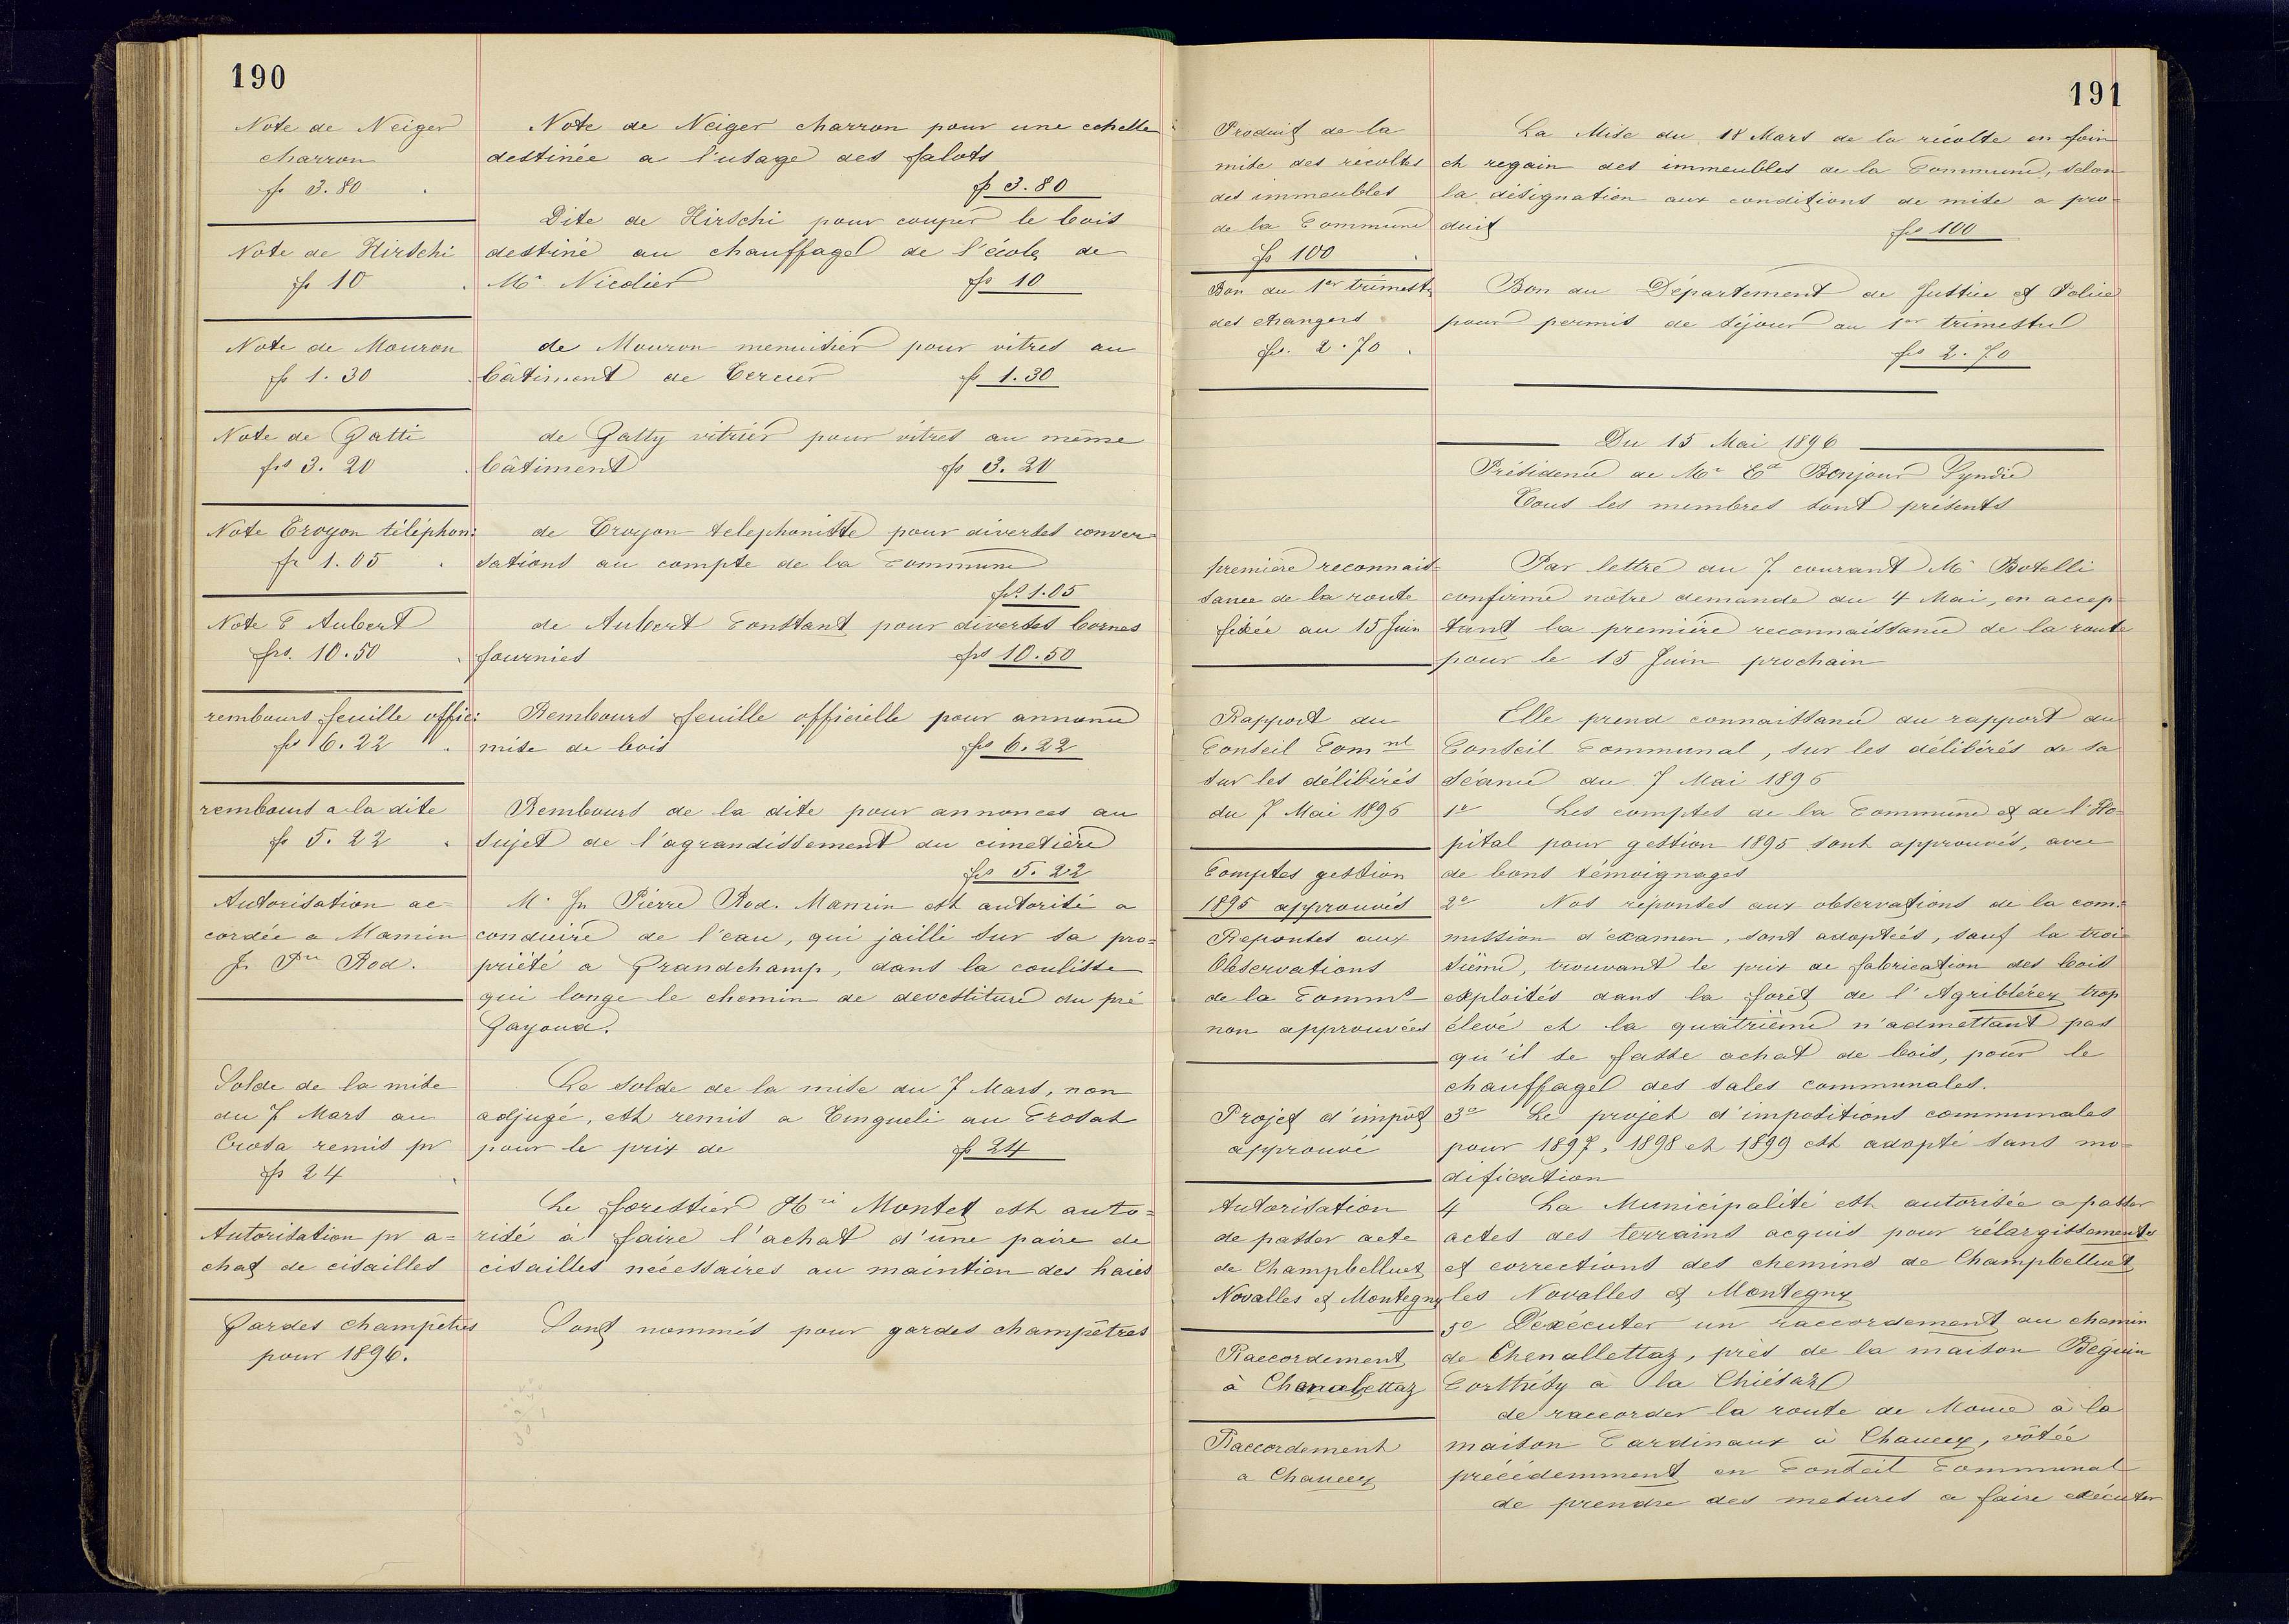 190
Note de Neiger
charron
fr 3.80
Note de Neiger charron pour une echelle
destinée a l'usage des falots
fr 3.80
Note de Hirschi
fr 10
Dite de Hirschi pour couper le bois
destiné au chauffage de l'école de
Mr Nicolier fr 10
Note de Mouron
fr 1.30
de Mouron menuisier pour vitres au
bâtiment de Cercus fr 1.30
Note de Gatti
frs 3.20
de Gatty vitrier pour vitres au même
bâtiment fr 3.20
Note Troyon téléphon:
fr 1.05
de Troyon telephoniste pour diverses conver=
sations au compte de la Commune
frs 1.05
Note C Aubert
frs. 10.50
de Aubert Constant pour diverses bornes
fournies frs 10.50
rembours feuille offic:
frs 6.22
Rembours feuille officielle pour annonce
mise de bois frs 6.22
rembours a la dite
fr 5.22
Rembours de la dite pour annonces au
sujet de l'agrandissement du cimetière
frs 5.22
Autorisation ac=
cordée a Mamin
Jn Pre Rod.
Mr Jn Pierre Rod. Mamin est autorisé a
conduire de l'eau, qui jailli sur sa pro=
priété a Grandchamp, dans la coulisse
qui longe le chemin de devestiture du pré
Gayoud.
Solde de la mise
du 7 Mars au
Crosa remis pr
fr 24
Le solde de la mise du 7 Mars, non
adjugé, est remis a Tingueli au Crosat
pour le prix de fr 24
Autorisation pr a=
chat de cisailles
Le forestier Hri Montet est auto=
risé à faire l'achat d'une paire de
cisailles nécessaires au maintien des haies
Gardes champêtres
pour 1896.
Sont nommés pour gardes champêtres
191
Produit de la
mise des récoltes
des immeubles
de la Commune
fr 100
La Mise du 18 Mars de la récolte en foin
et regain des immeubles de la Commune, selon
la désignation aux conditions de mise a pro=
duit frs 100
Bon du 1er trimestre
des étrangers
fr. 2.70
Bon du Département de Justice et Police
pour permis de séjour au 1er trimestre
frs 2.70
Du 15 Mai 1896
Présidence de Mr Ed Bonjour Syndic
Tous les membres sont présents
première reconnais=
sance de la route
fixée au 15 Juin
Par lettre du 7 courant Mr Botelli
confirme notre demande du 4 Mai, en accep=
tant la première reconnaissance de la route
pour le 15 Juin prochain
Rapport du
Conseil Comnl
sur les délibérés
du 7 Mai 1896
Elle prend connaissance du rapport du
Conseil Communal, sur les délibérés de sa
séance du 7 Mai 1896
Comptes gestion
1895 approuvés
1o Les comptes de la Commune et de l'Ho=
pital pour gestion 1895 sont approuvés, avec
de bons témoignages
Reponses aux
Observations
de la Comms
non approuvées
2o Nos réponses aux observations de la com=
mission d'examen, sont adoptées, sauf la troi=
sième, trouvant le prix de fabrication des bois
exploités dans la forêt de l'Agriblérez trop
élevé et la quatrième n'admettant pas
qu'il se fasse achat de bois, pour le
chauffage des sales communales.
Projet d'impôt
approuvé
3o Le projet d'impositions communales
pour 1897, 1898 et 1899 est adopté sans mo=
dification
Autorisation
de passer acte
de Champbelluet
Novalles et Montegny
4 La Municipalité est autorisée a passer
actes des terrains acquis pour rélargissements
et corrections des chemins de Champbelluet
les Novalles et Montegny
Raccordement
à Chenalettaz
5o D'exécuter un raccordement au chemin
de Chenallettaz, près de la maison Béguin
Corthésy à la Chiésaz
Raccordement
a Chaucey
de raccorder la route de Mouce à la
maison Cardinaux à Chaucey, votée
précédemment en Conseil Communal
de prendre des mesures a faire exécuter